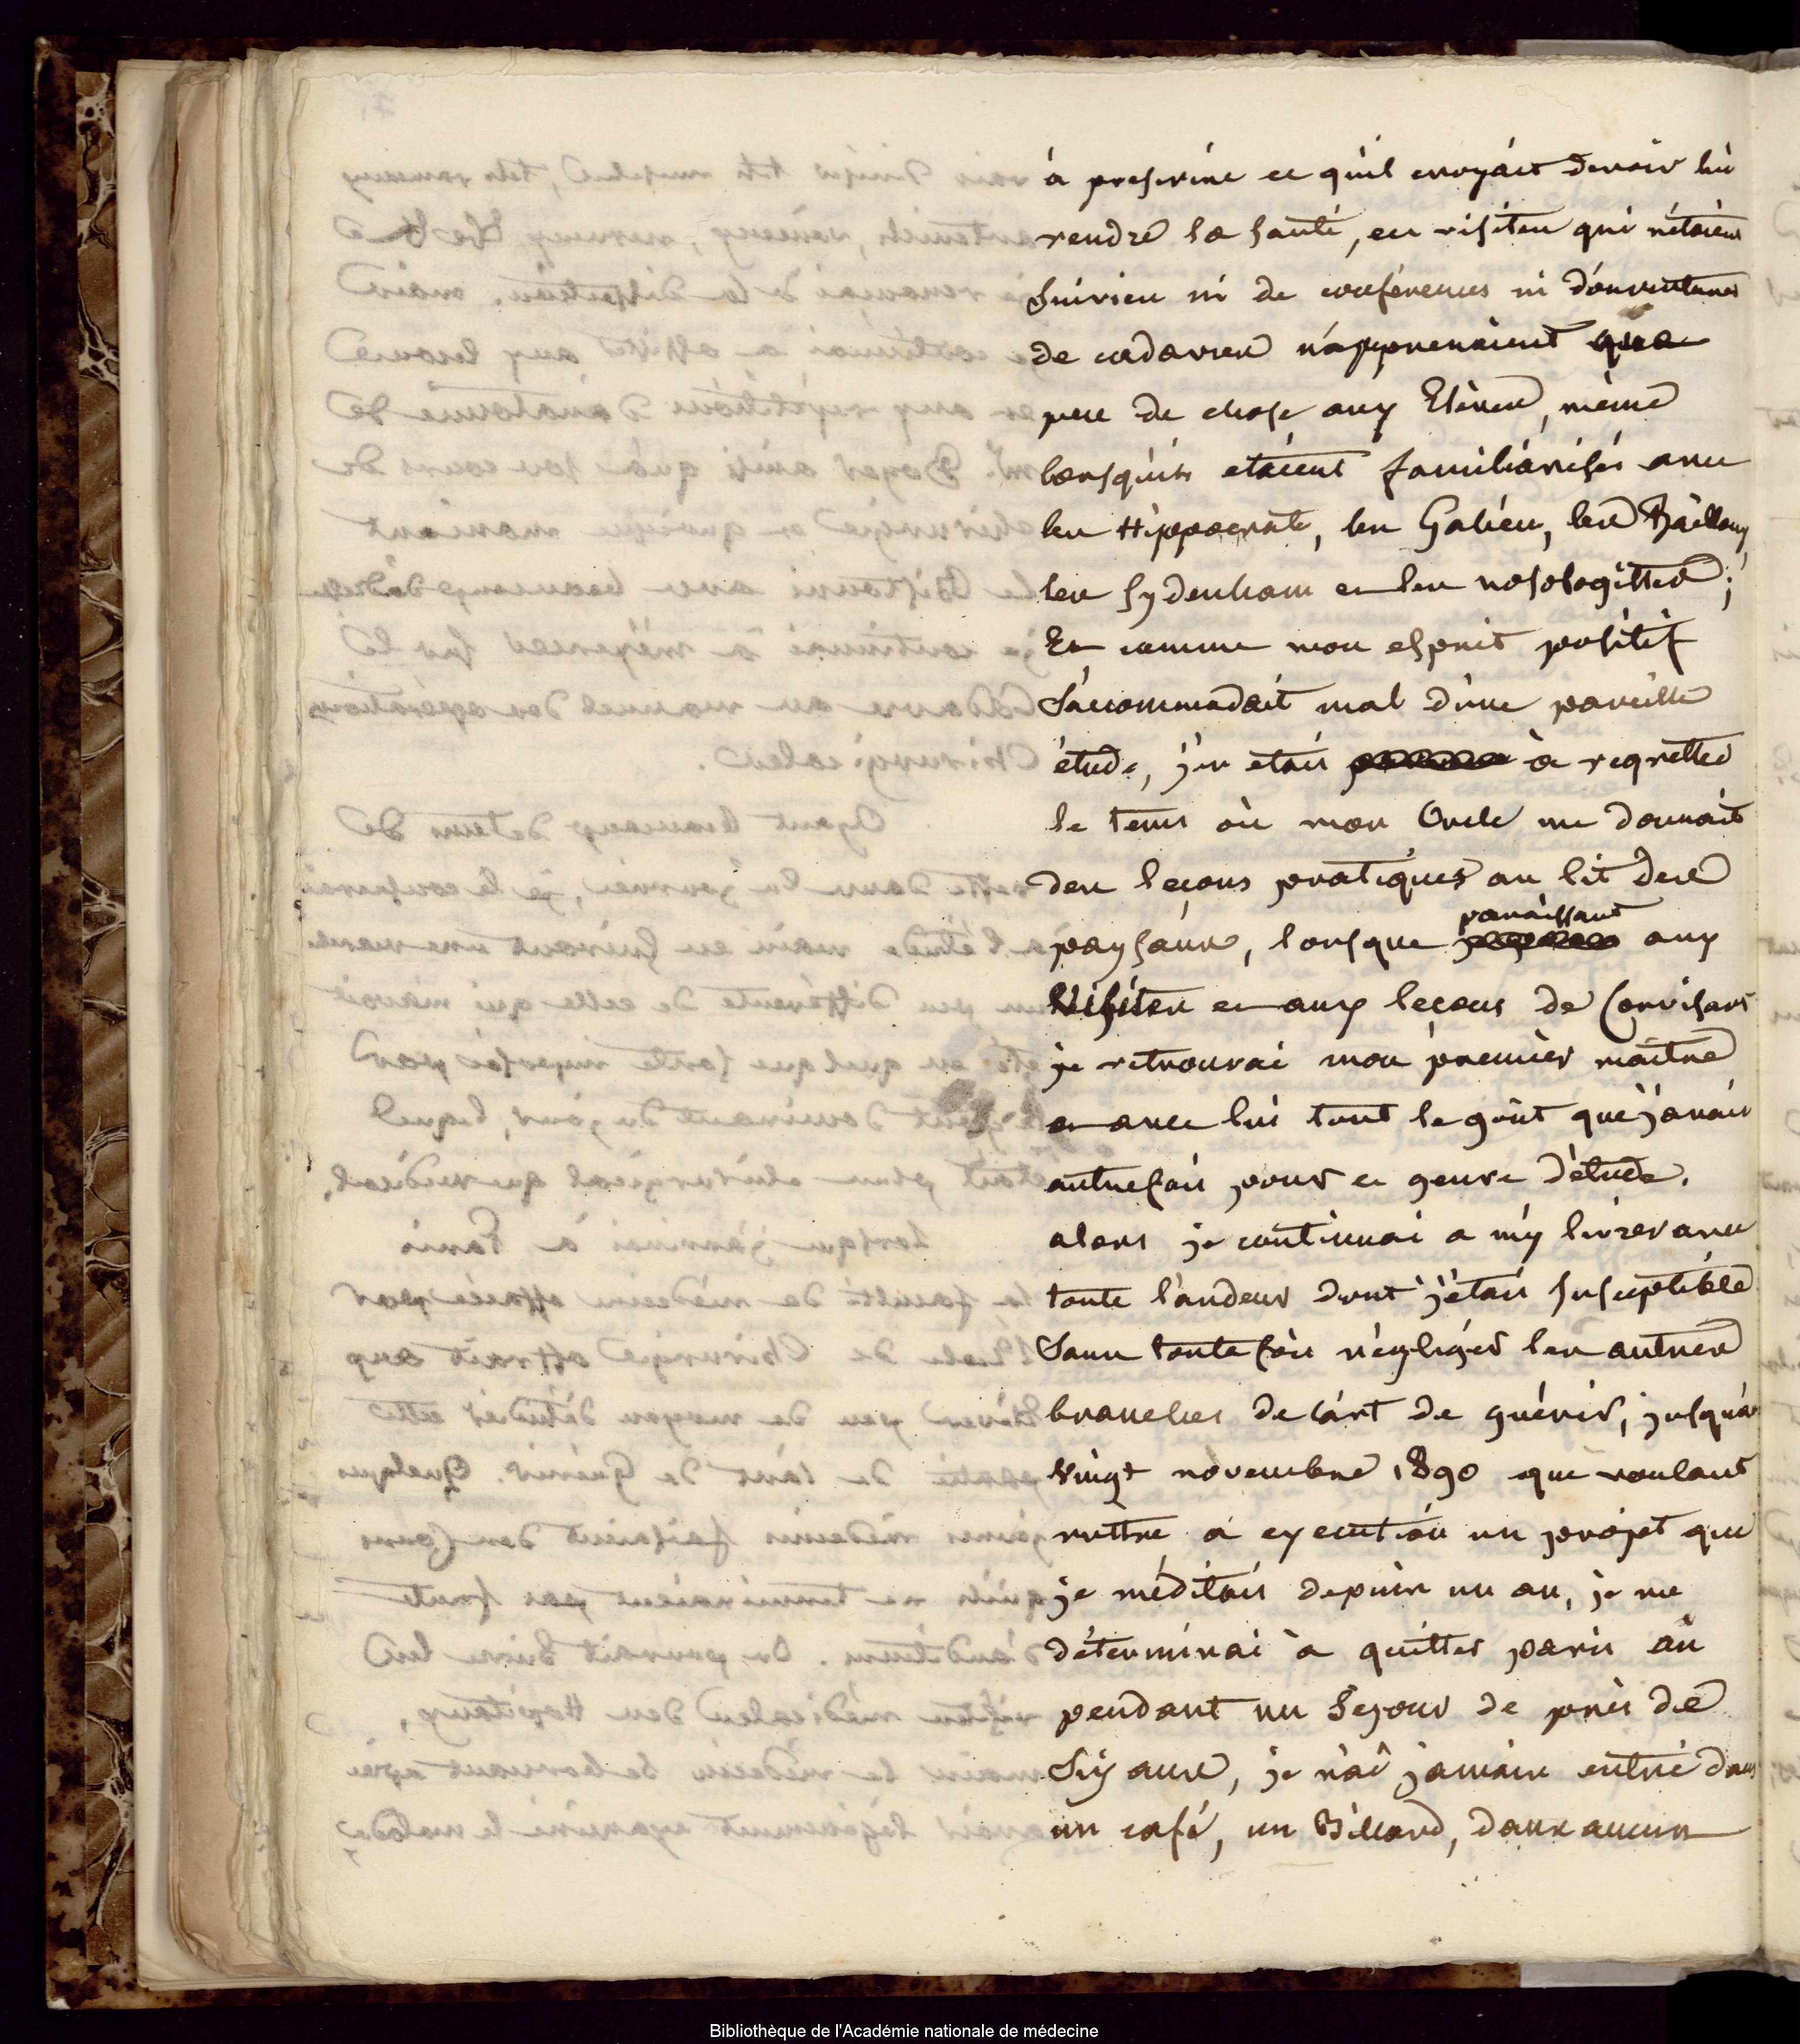 à prescrire ce qu'il croyait devoir lui
rendre la santé, ces visites qui n'étaient
suivies ni de conférences ni d'ouvertures
de cadavres n'apprenaient
peu de chose aux Elèves, même
lorsqu'ils etaient familiarisés avec
les Hippocrate, les Galien, les Baillou,
les Sydenham et les nosologistes;
Et comme mon esprit positif
s'accommodait mal d'une pareille
étude, j'en etais à regretter
le tems où mon Oncle me donnait
des leçons pratiques au lit des
paysans, lorsque paraissant aux
Visites et aux leçons de Corvisart
je retrouvai mon premier maître
et avec lui tout le goût que j'avais
autrefois pour ce genre d'étude.
alors je continuai a m'y livrer avec
toute l'ardeur dont j'étais susceptible
sans toutefois négliger les autres
branches de l'art de guérir, jusqu'au
vingt novembre 1890 que voulant
mettre à execution un projet que
je méditais depuis un an, je me
déterminai à quitter paris où
pendant un séjour de près de
six ans, je n'ai jamais entré dans
un café, un Billard, dans aucun
Bibliothèque de l'Académie nationale de médecine